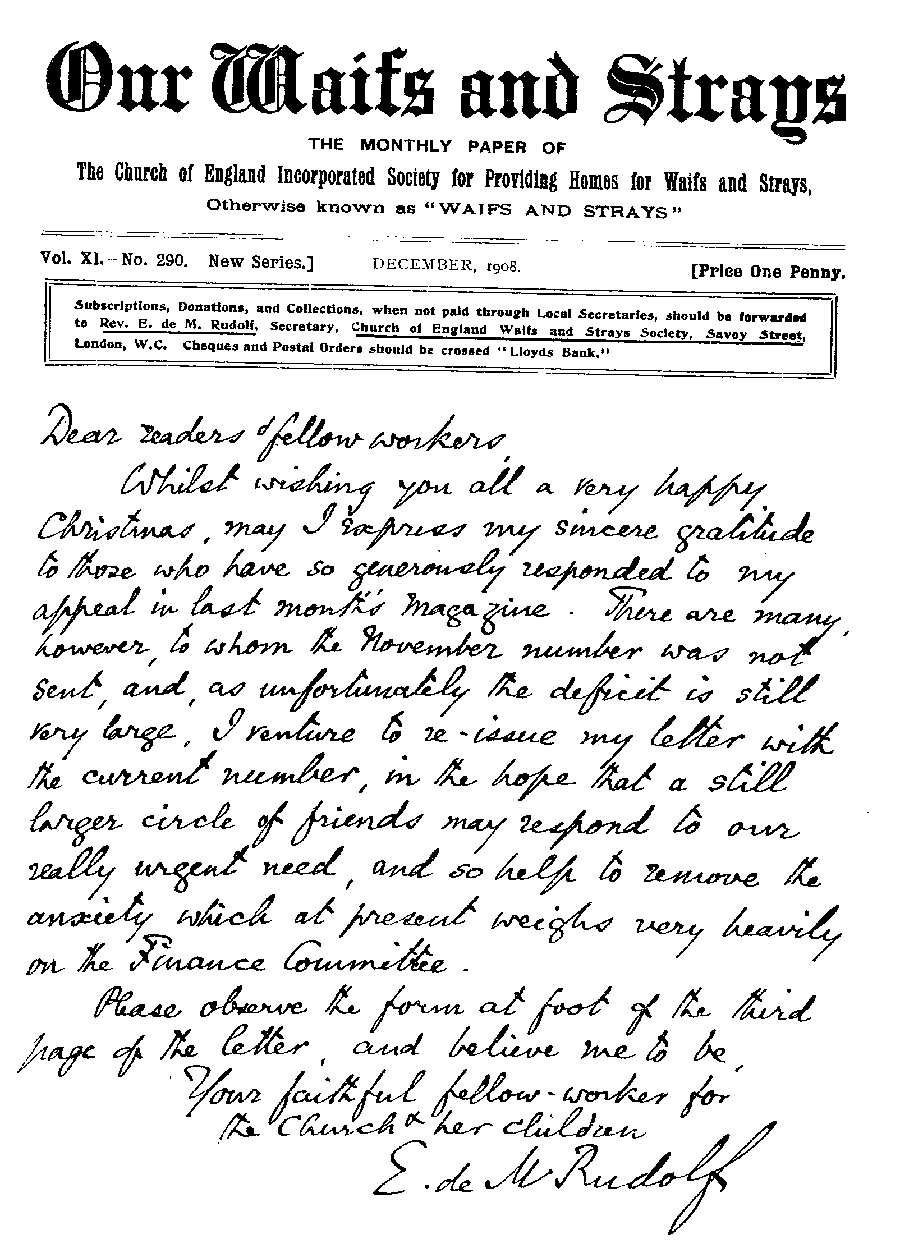 Our Waifs and Strays
THE MONTHLY PAPER OF
The Church of England Incorporated Society for Providing Homes for Waifs and Strays,
Otherwise known as "WAIFS AND STRAYS"
Vol. XI.—No. 290. New Series.] DECEMBER, 1908. [Price One Penny.
Subscriptions, Donations, and Collections, when not paid through Local Secretaries, should be forwarded
to Rev. E. de M. Rudolf, Secretary, Church of England Waifs and Strays Society, Savoy Street,
London, W.C. Cheques and Postal Orders should be crossed "Lloyds Bank."
Dear readers & fellow workers,
Whilst wishing you all a very happy
Christmas, may I express my sincere gratitude
to those who have so generously responded to my
appeal in last month's Magazine. There are many,
however, to whom the November number was not
sent, and, as unfortunately the deficit is still
very large, I venture to re-issue my letter with
the current number, in the hope that a still
larger circle of friends may respond to our
really urgent need, and so help to remove the
anxiety which at present weighs very heavily
on the Finance Committee.
Please observe the form at foot of the third
page of the letter, and believe me to be,
Your faithful fellow-worker for
the Church & her children
E. de M Rudolf